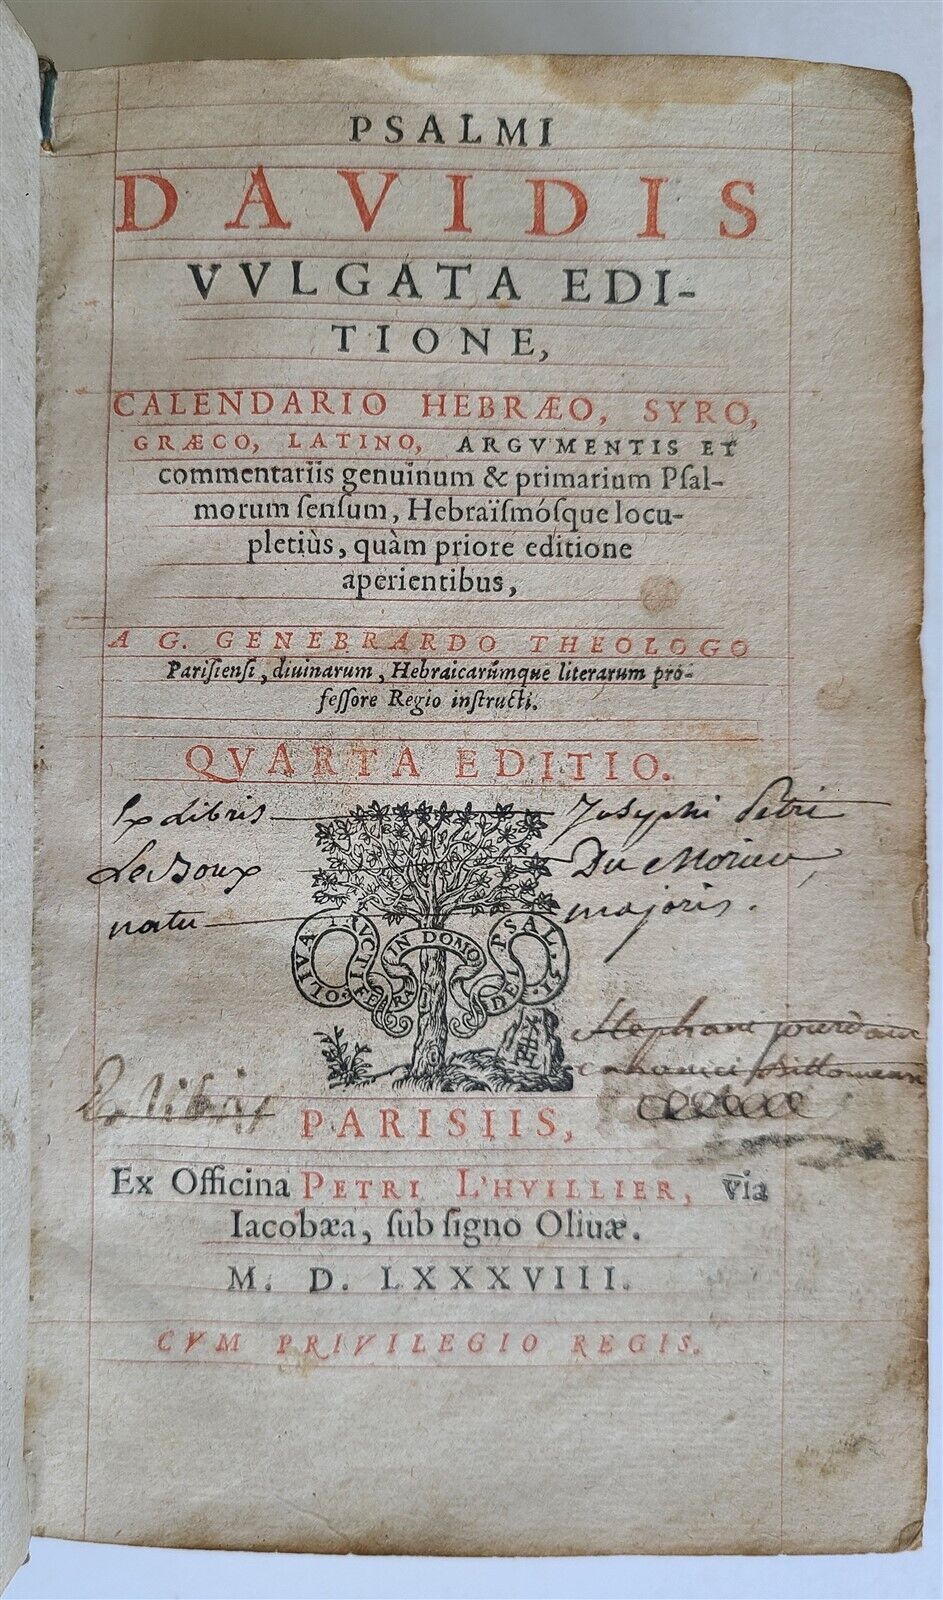 PSALMI
DAVIDIS
VVLGATA EDI-
TIONE,
CALENDARIO HEBRÆO, SYRO,
GRÆCO, LATINO, ARGVMENTIS ET
commentariis genuinum & primarium Pſal-
morum ſenſum, Hebraïſmóſque locu-
pletiùs, quàm priore editione
aperientibus,
A G. GENEBRARDO THEOLOGO
Pariſienſi, diuinarum, Hebraicarúmque literarum pro-
feſſore Regio inſtructi.
QVARTA EDITIO.
Ex libris Josephi Petri
Le Boux Du
natu majoris.
OLIVA FRUCTIFERA IN DOMO DEI. PSAL. 51
Stephani jourdain
canonici
Ex libris
PARISIIS,
Ex Officina PETRI L'HVILLIER, via
Iacobæa, ſub ſigno Oliuæ.
M. D. LXXXVIII.
CVM PRIVILEGIO REGIS.